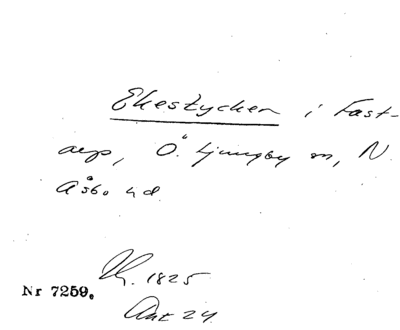 Ekestycken i Fast-
arp, Ö. Ljungby sn, N.
Åsbo hd.
Nr 7259. Uh. 1825
Ant 24